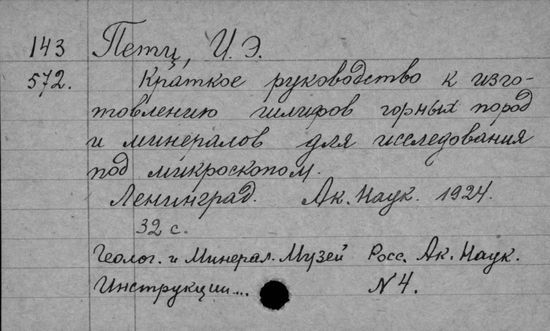 143 Петц, И. Э.
572. Краткое руководство к изго-
товлению шлифов горных пород
и минералов для исследования
под микроскопом.
Ленинград. Ак. Наук. 1924.
32 с.
Геолог. и Минерал. Музей Росс. Ак. Наук.
Инструкции... N 4.